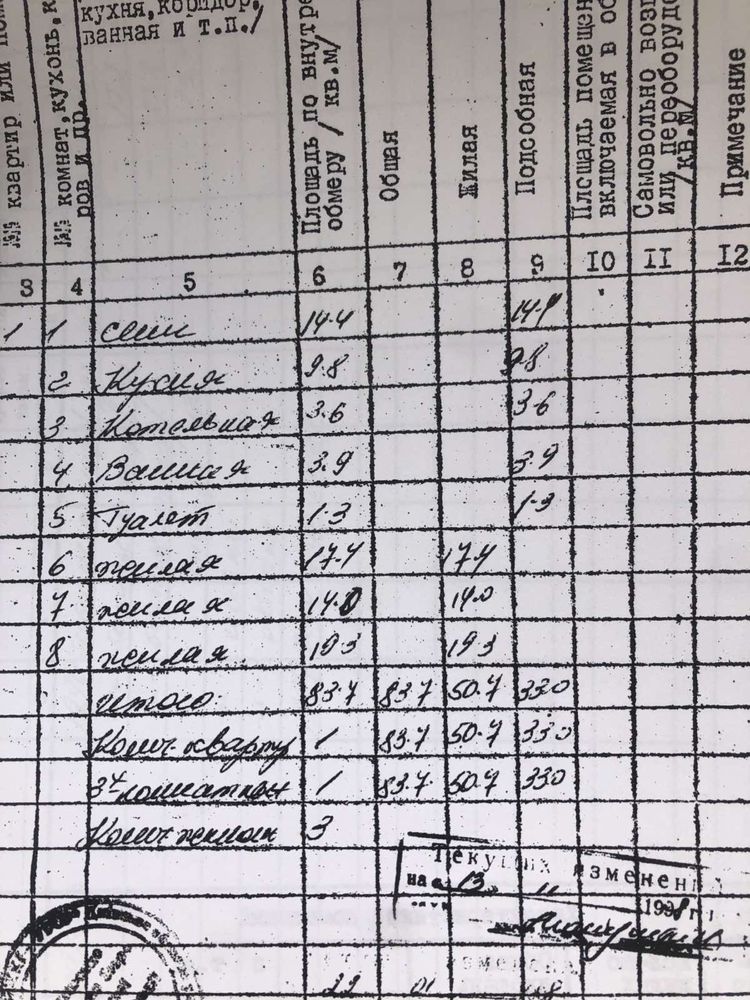 №№ квартир или
№№ комнат, кухонь,
ров и др.
кухня, коридор,
ванная и т.п./
Площадь по внутре
обмеру / кв.м/
Общая
Жилая
Подсобная
Площадь помещен
включаемая в об
Самовольно возв
или переоборудо
/кв.м/
Примечание
3 4 5 6 7 8 9 10 11 12
1 1 сени 14.4 14.4
2 Кухня 9.8 9.8
3 Котельная 3.6 3.6
4 Ванная 3.9 3.9
5 Туалет 1.3 1.3
6 жилая 17.4 17.4
7 жилая 14.0 14.0
8 жилая 19.3 19.3
итого: 83.7 83.7 50.7 33.0
Колич. квартир 1 83.7 50.7 33.0
3х комнатных 1 83.7 50.7 33.0
Колич жилых 3
Текущих изменени
на " 13 " 11
1998 г.
22 01